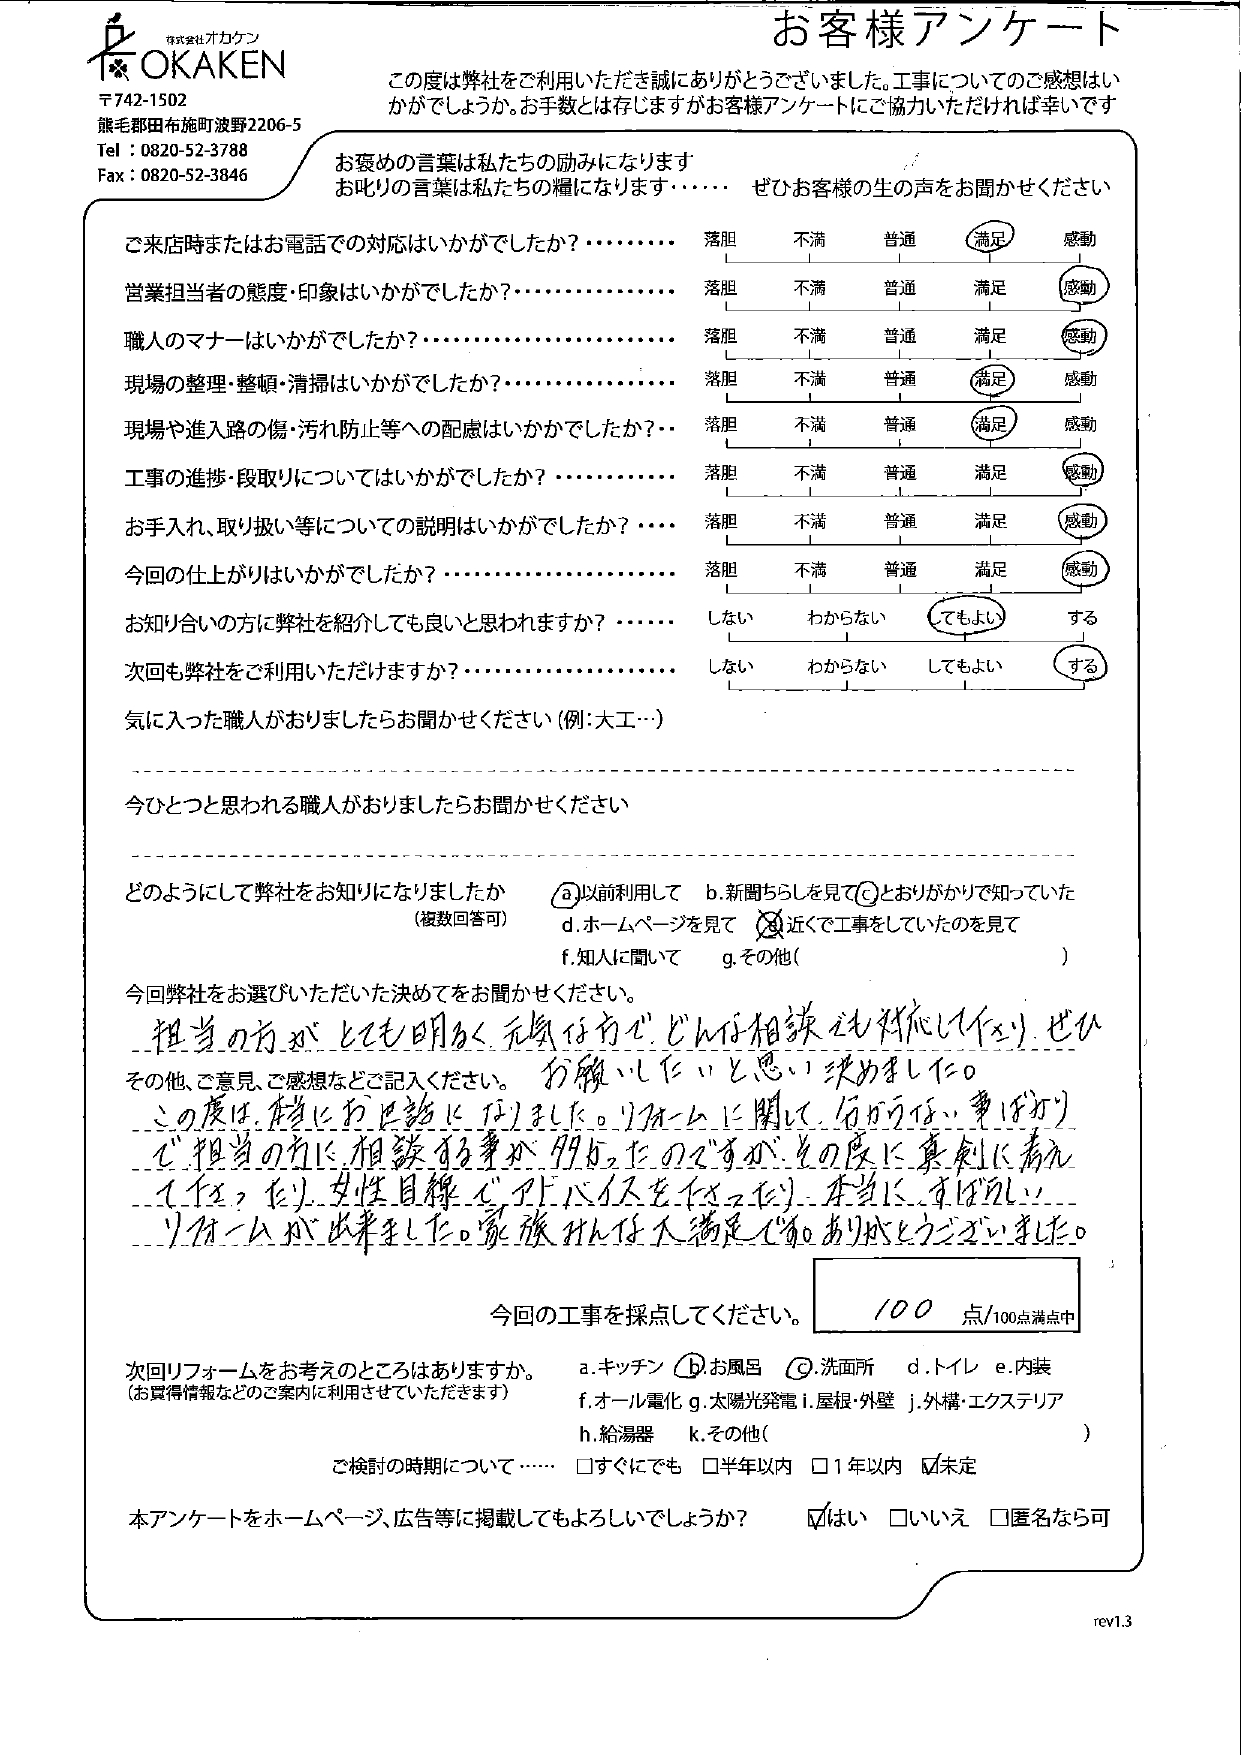 お客様アンケート
株式会社オカケン
OKAKEN
〒742-1502
熊毛郡田布施町波野2206-5
Tel：0820-52-3788
Fax：0820-52-3846
この度は弊社をご利用いただき誠にありがとうございました。工事についてのご感想はい
かがでしょうか。お手数とは存じますがお客様アンケートにご協力いただければ幸いです
お褒めの言葉は私たちの励みになります
お叱りの言葉は私たちの糧になります‥‥‥ ぜひお客様の生の声をお聞かせください
ご来店時またはお電話での対応はいかがでしたか？ ········· 落胆 不満 普通 満足 感動
営業担当者の態度・印象はいかがでしたか？ ················ 落胆 不満 普通 満足 感動
職人のマナーはいかがでしたか？ ························· 落胆 不満 普通 満足 感動
現場の整理・整頓・清掃はいかがでしたか？ ················· 落胆 不満 普通 満足 感動
現場や進入路の傷・汚れ防止等への配慮はいかかでしたか？ ·· 落胆 不満 普通 満足 感動
工事の進捗・段取りについてはいかがでしたか？ ············ 落胆 不満 普通 満足 感動
お手入れ、取り扱い等についての説明はいかがでしたか？ ···· 落胆 不満 普通 満足 感動
今回の仕上がりはいかがでしたか？ ······················· 落胆 不満 普通 満足 感動
お知り合いの方に弊社を紹介しても良いと思われますか？ ······ しない わからない してもよい する
次回も弊社をご利用いただけますか？ ····················· しない わからない してもよい する
気に入った職人がおりましたらお聞かせください（例：大工…）
今ひとつと思われる職人がおりましたらお聞かせください
どのようにして弊社をお知りになりましたか a.以前利用して b.新聞ちらしを見て c.とおりがかりで知っていた
（複数回答可） d.ホームページを見て e.近くで工事をしていたのを見て
f.知人に聞いて g.その他( )
今回弊社をお選びいただいた決めてをお聞かせください。
担当の方が とても明るく、元気な方で、どんな相談でも対応して下さり、ぜひ
その他、ご意見、ご感想などご記入ください。 お願いしたいと思い決めました。
この度は、本当にお世話になりました。リフォームに関して、分からない事ばかり
で、担当の方に、相談する事が多かったのですが、その度に真剣に考え
て下さったり、女性目線で、アドバイスを下さったり、本当に、すばらしい
リフォームが出来ました。家族みんな大満足です。ありがとうございました。
今回の工事を採点してください。 100 点/100点満点中
次回リフォームをお考えのところはありますか。 a.キッチン b.お風呂 c.洗面所 d.トイレ e.内装
（お買得情報などのご案内に利用させていただきます） f.オール電化 g.太陽光発電 i.屋根・外壁 j.外構・エクステリア
h.給湯器 k.その他( )
ご検討の時期について …… □すぐにでも □半年以内 □1年以内 ☑未定
本アンケートをホームページ、広告等に掲載してもよろしいでしょうか？ ☑はい □いいえ □匿名なら可
rev1.3